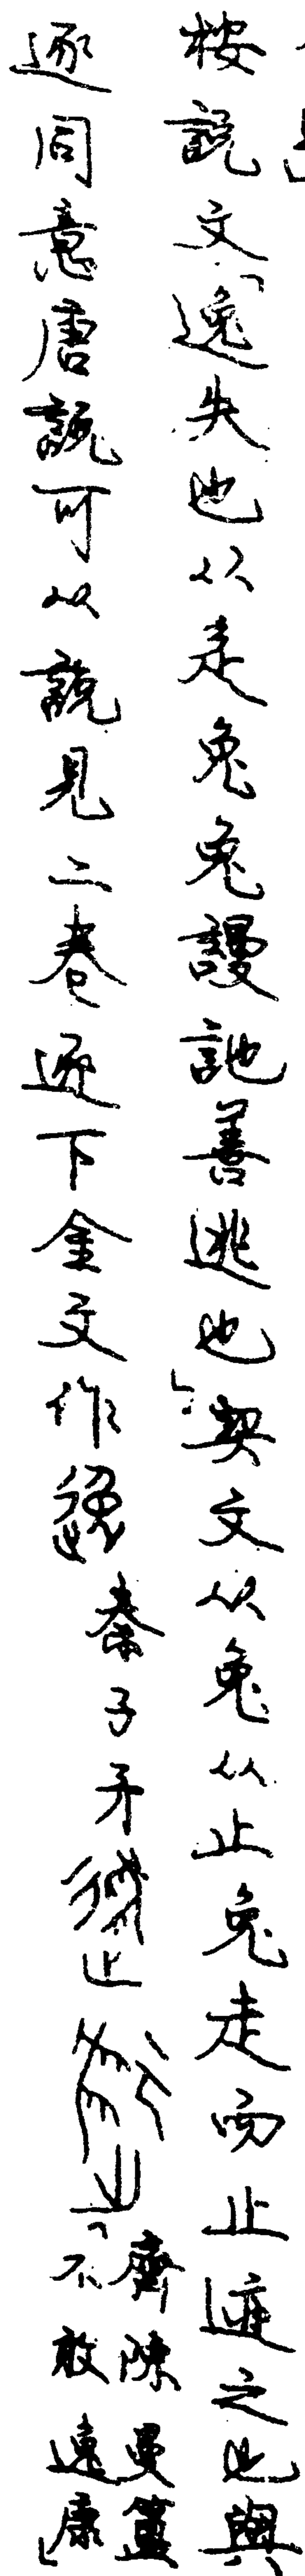 桉說文「逸失也从辵兔兔謾訑善逃也」契文从兔从止兔走而止䢱之也與
逐同意唐說可从說見二卷逐下金文作 秦子矛 齊陳曼簠「不敢逸康」